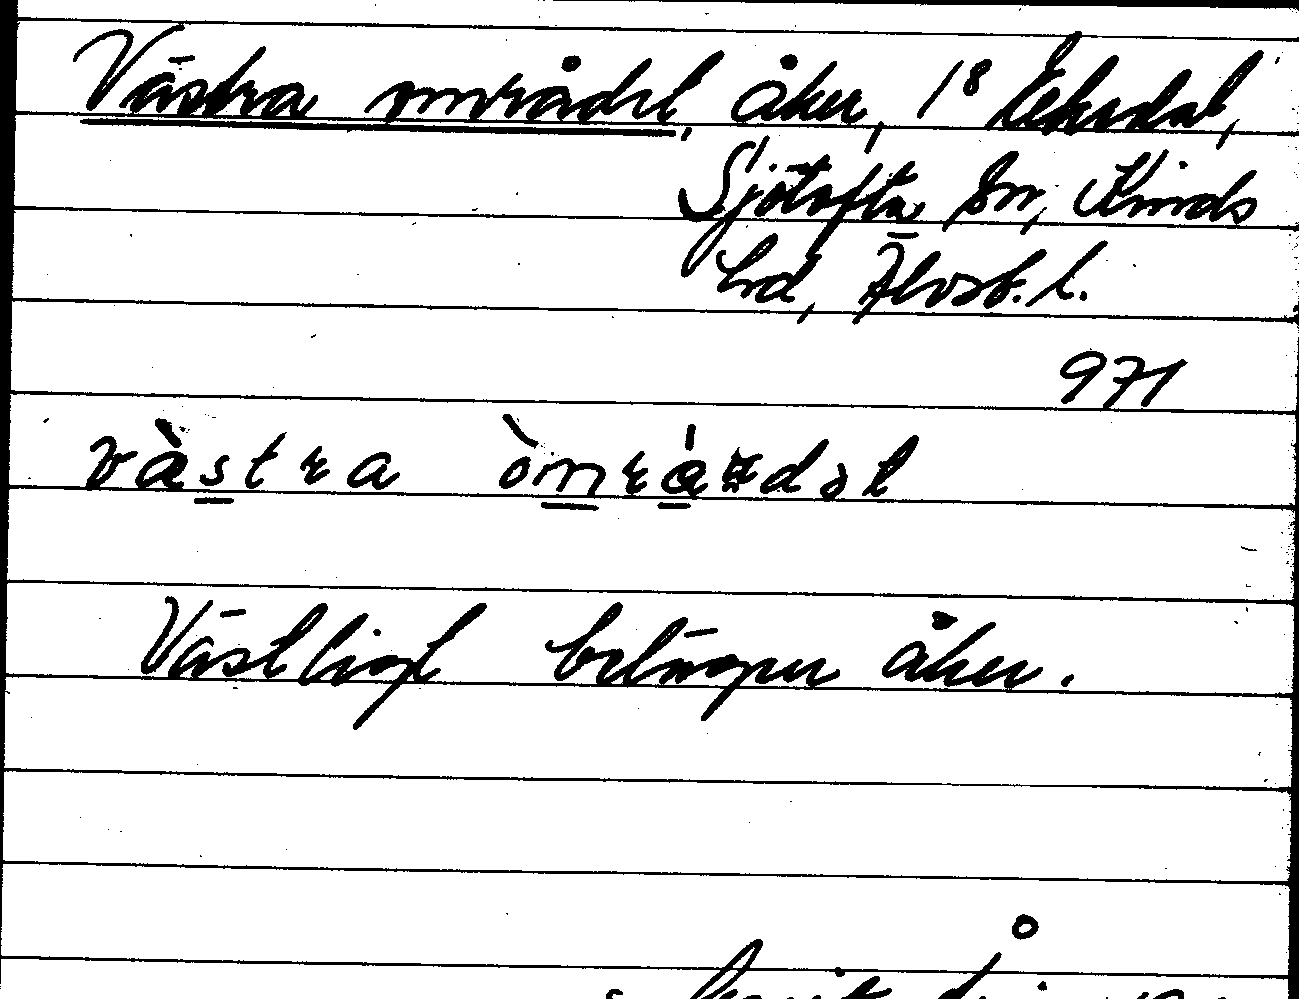 Västra området, åker, 1⁸ Eksdal,
Sjötofta sn, Kinds
hd, Älvsb. l.
971
vàstra òmrádəl
Västligt belägen åker.